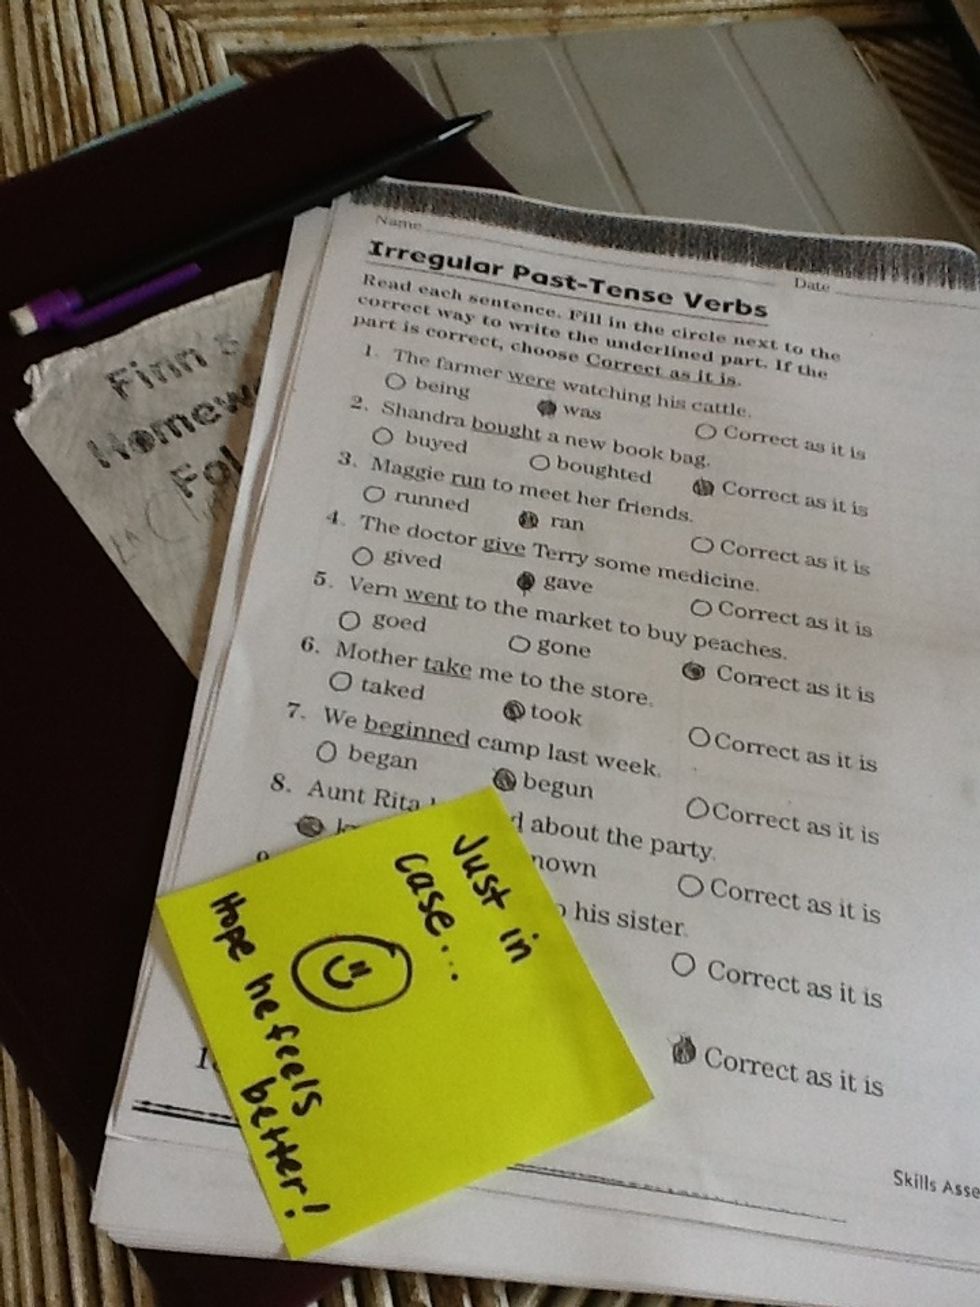 Name
Date
Irregular Past-Tense Verbs
Read each sentence. Fill in the circle next to the
correct way to write the underlined part. If the
part is correct, choose Correct as it is.
1. The farmer were watching his cattle.
being was Correct as it is
2. Shandra bought a new book bag.
buyed boughted Correct as it is
3. Maggie run to meet her friends.
runned ran Correct as it is
4. The doctor give Terry some medicine.
gived gave Correct as it is
5. Vern went to the market to buy peaches.
goed gone Correct as it is
6. Mother take me to the store.
taked took Correct as it is
7. We beginned camp last week.
began begun Correct as it is
8. Aunt Rita about the party.
Correct as it is
his sister.
Correct as it is
Correct as it is
Skills
Just in
case...
Hope he feels
better!
Finn's